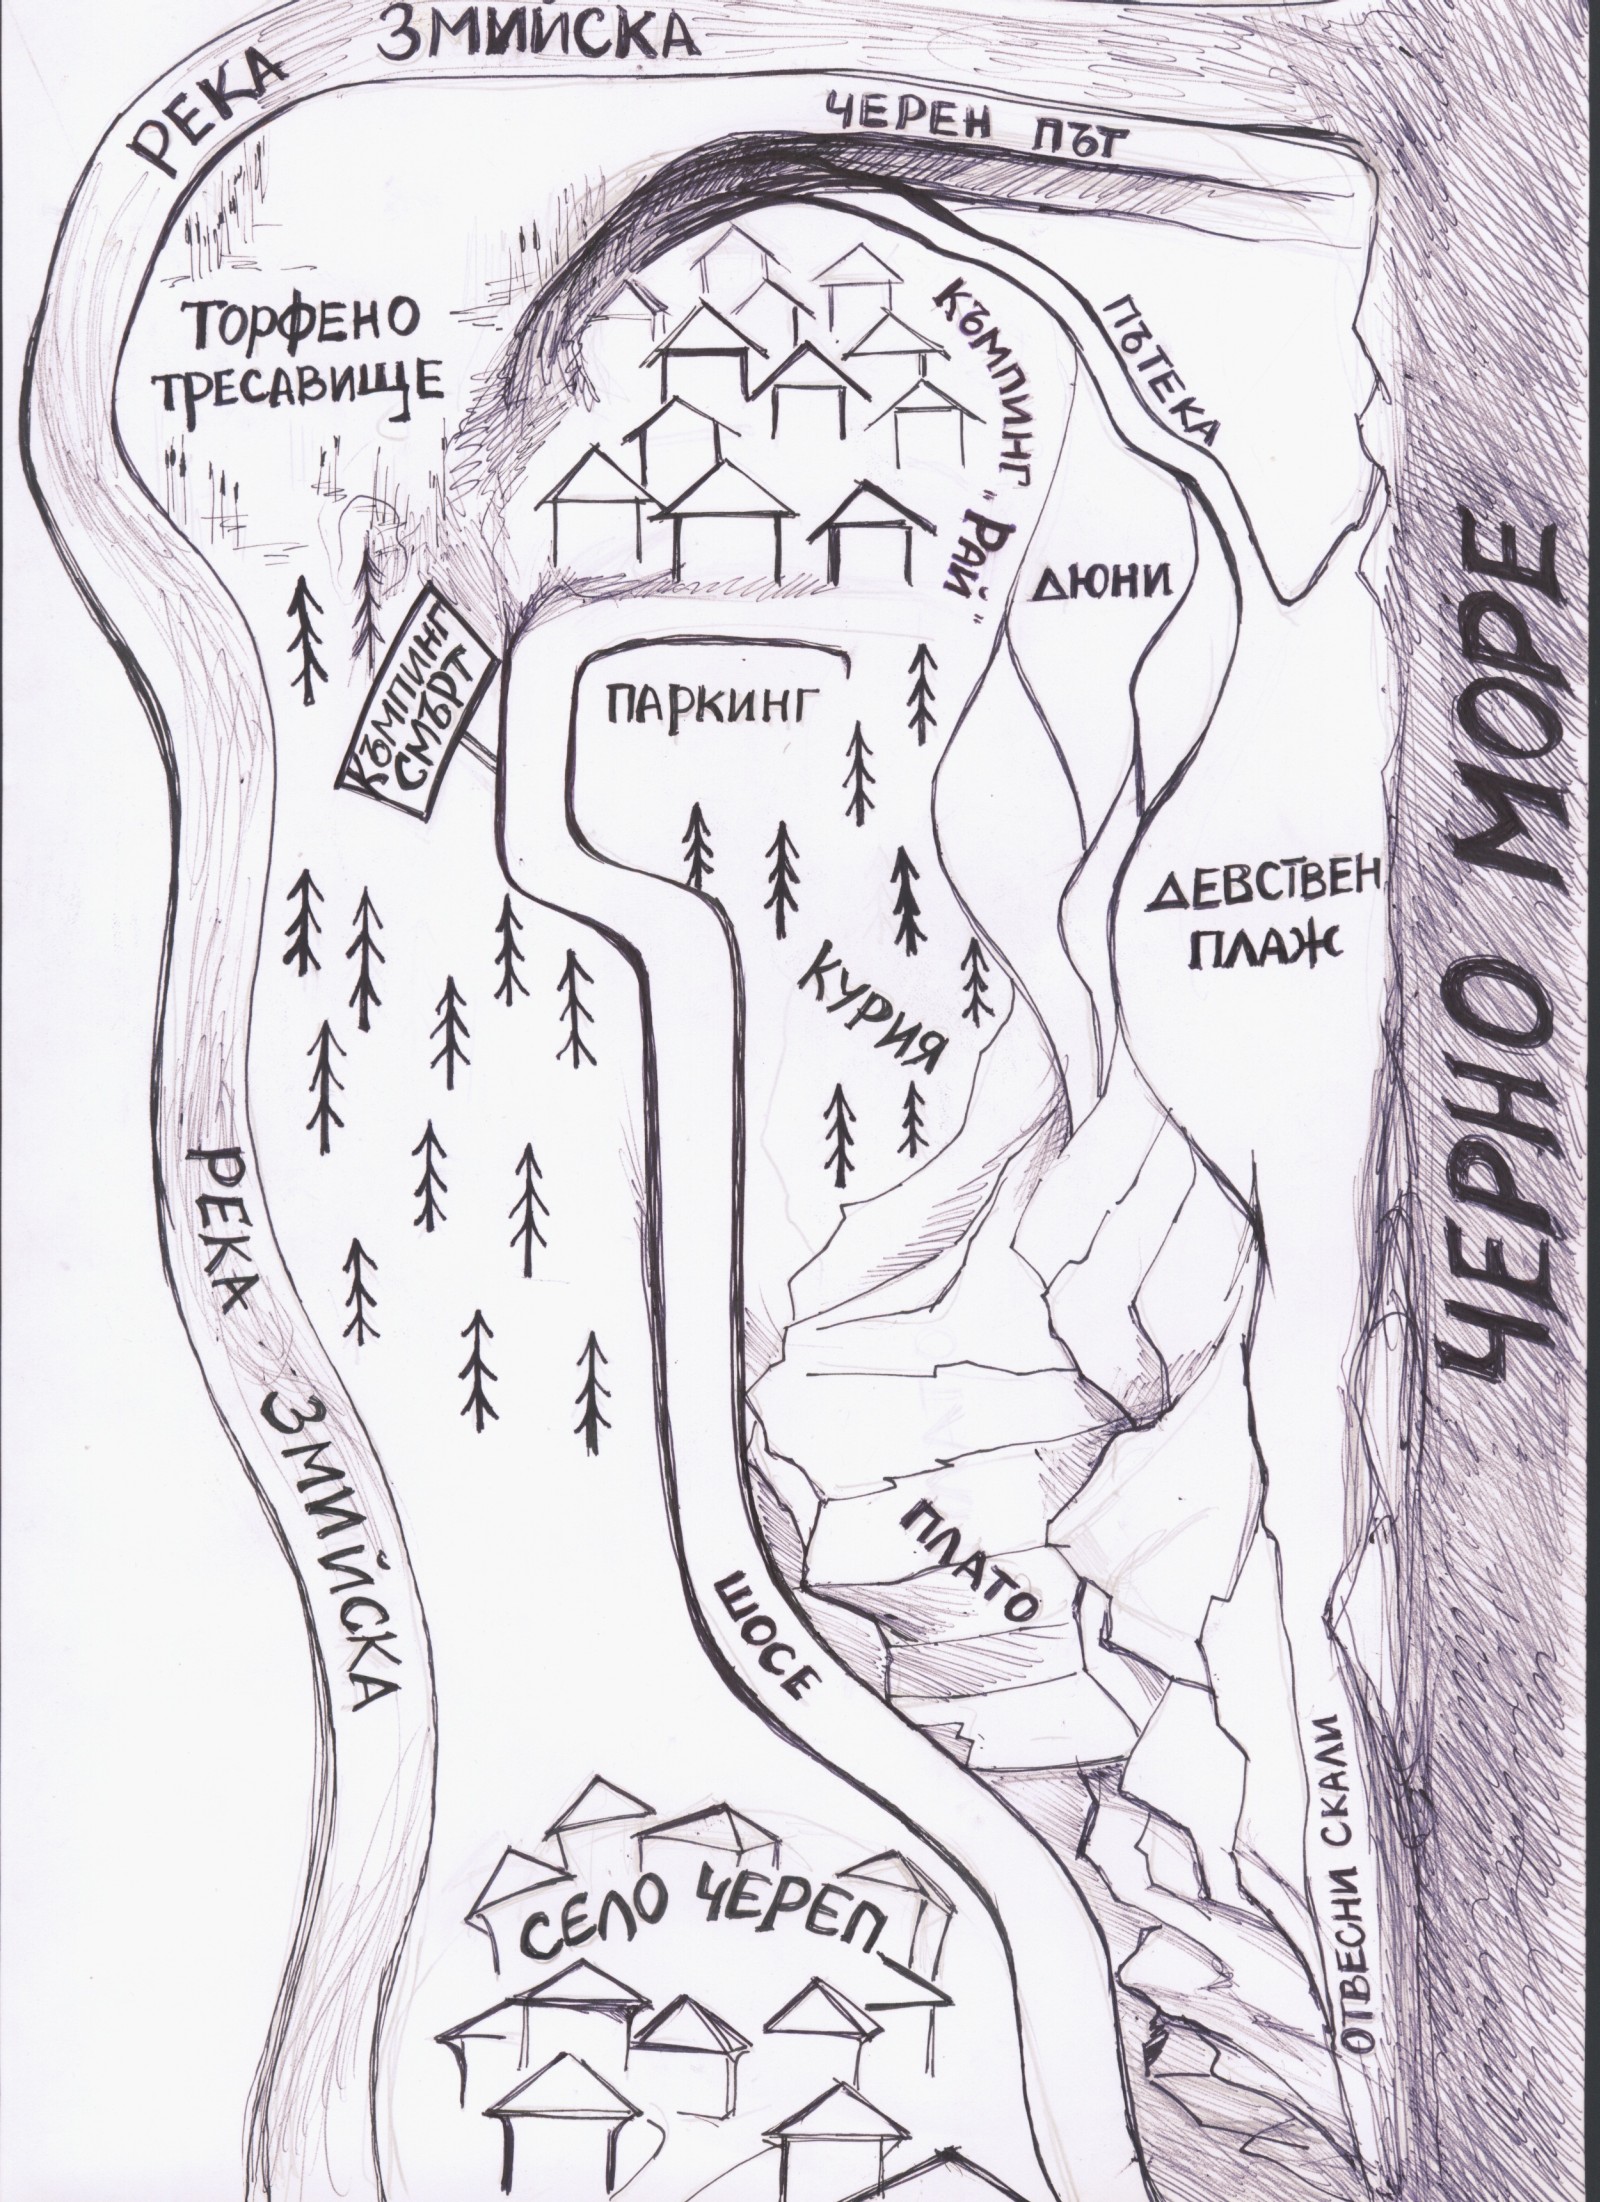 РЕКА ЗМИЙСКА
ЧЕРЕН ПЪТ
ТОРФЕНО
ТРЕСАВИЩЕ
КЪМПИНГ „РАЙ"
ПЪТЕКА
ДЮНИ
КЪМПИНГ
СМЪРТ
ПАРКИНГ
ДЕВСТВЕН
ПЛАЖ
ЧЕРНО МОРЕ
КУРИЯ
РЕКА ЗМИЙСКА
ПЛАТО
ШОСЕ
ОТВЕСНИ СКАЛИ
СЕЛО ЧЕРЕП